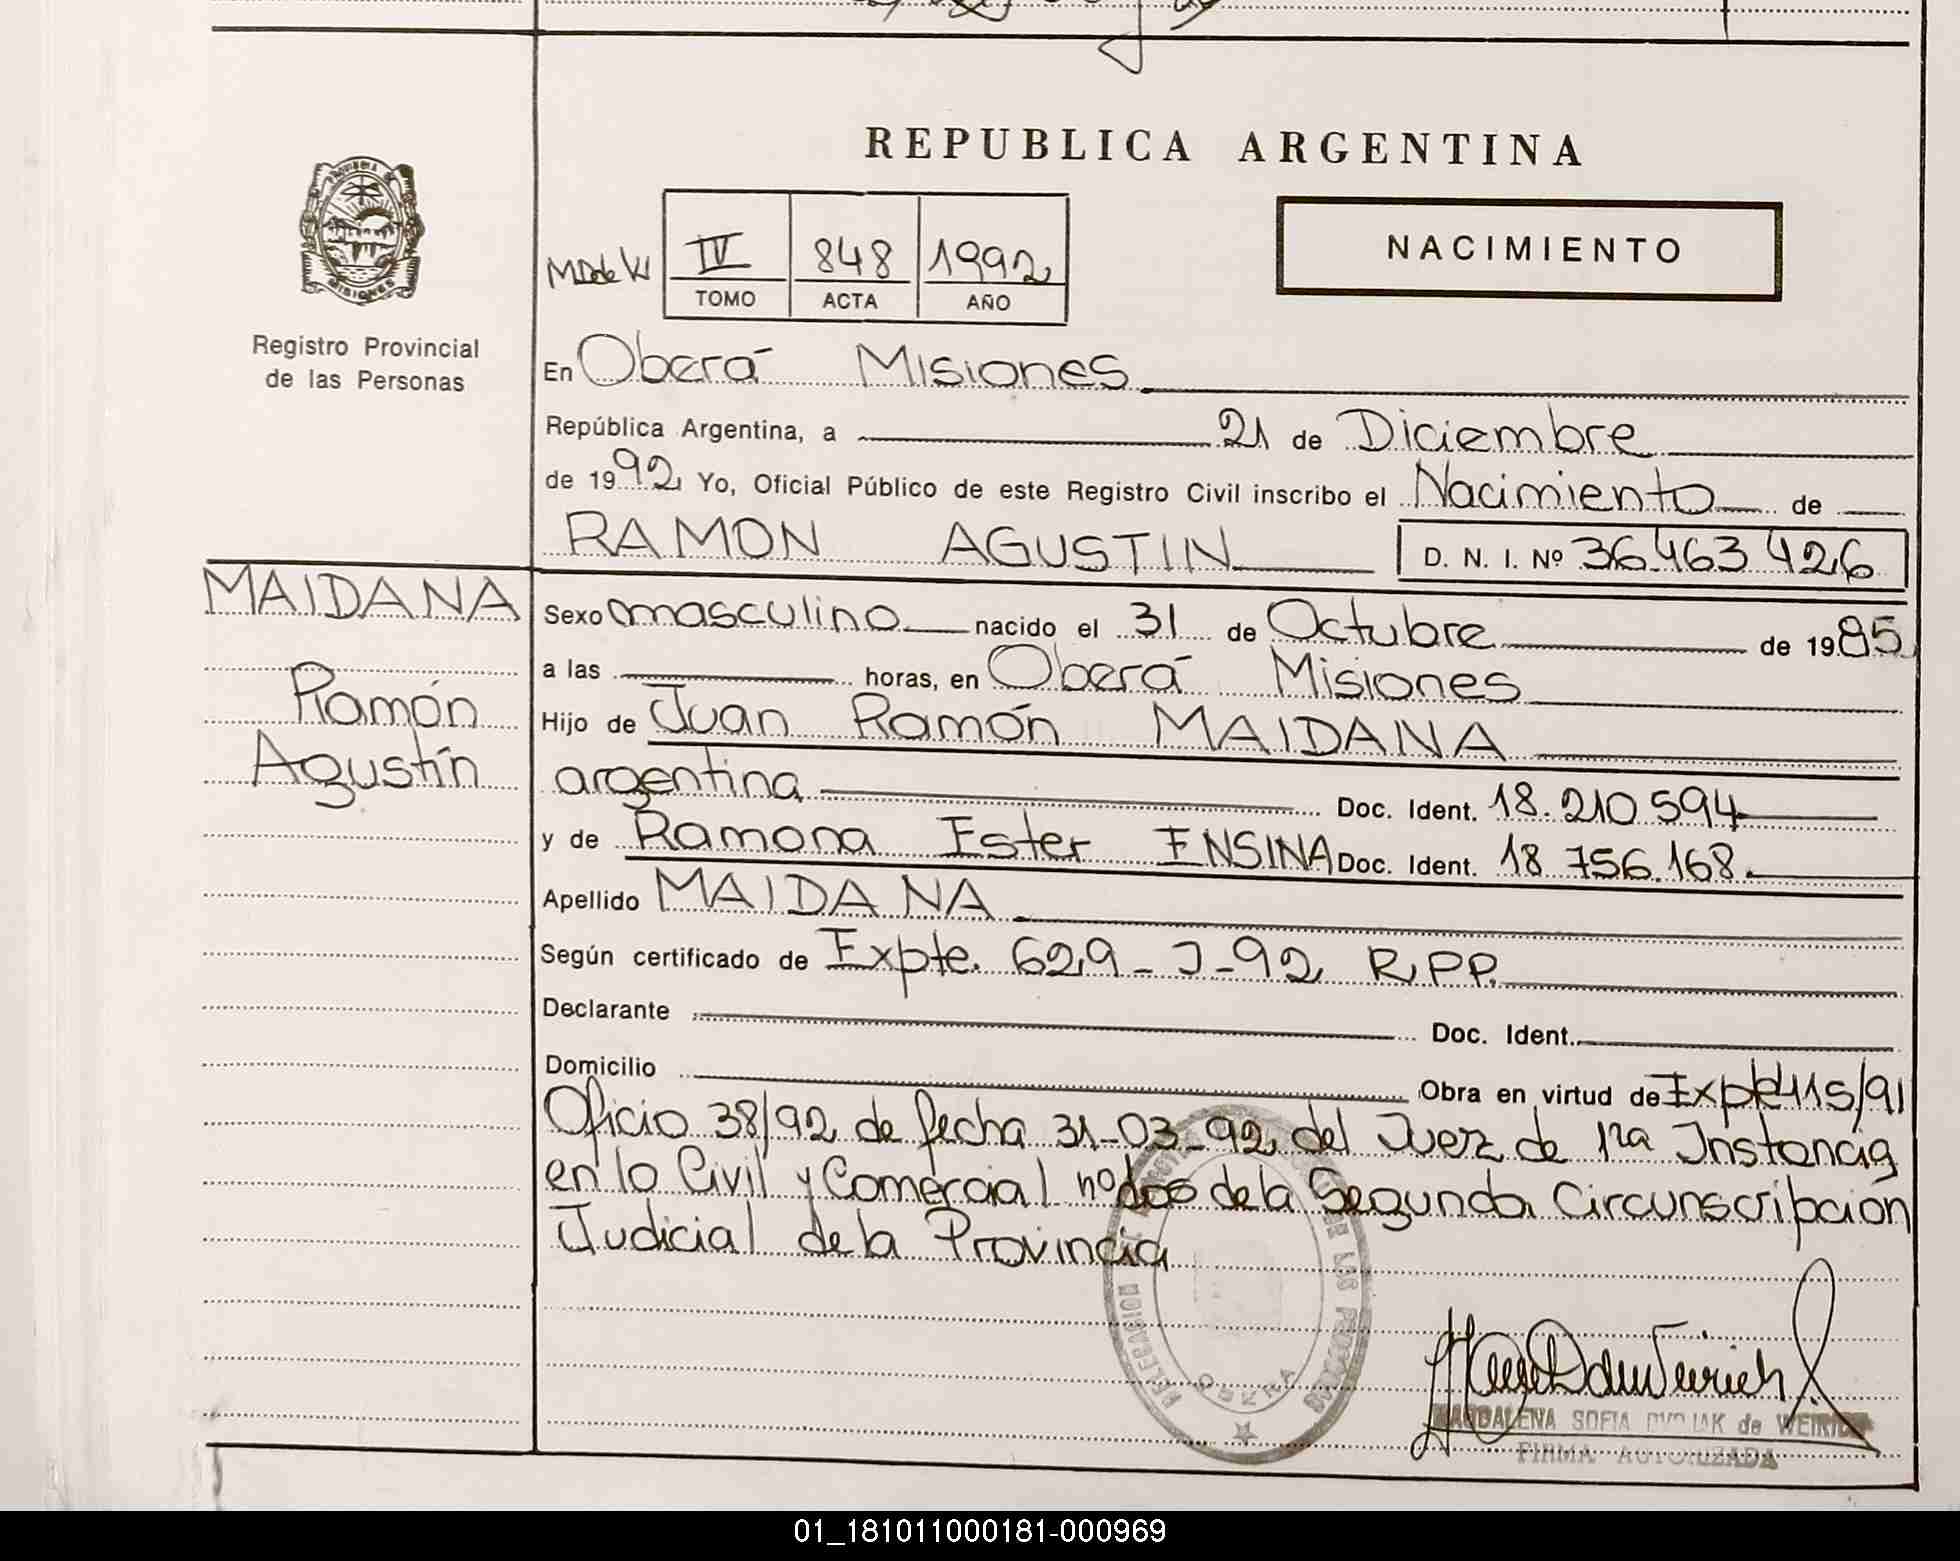 REPUBLICA ARGENTINA
PROVINCIA DE
MISIONES
Registro Provincial
de las Personas
NACIMIENTO
IV 848 1992
TOMO ACTA AÑO
En Oberá Misiones
República Argentina, a 21 de Diciembre
de 1992 Yo, Oficial Público de este Registro Civil inscribo el Nacimiento de
RAMON AGUSTIN D. N. I. Nº 36.463 426
MAIDANA
Ramón
Agustín
Sexo masculino nacido el 31 de Octubre de 1985
a las horas, en Oberá Misiones
Hijo de Juan Ramón MAIDANA
argentina Doc. Ident. 18.210.594
y de Ramona Ester ENSINA Doc. Ident. 18.756.168.
Apellido MAIDANA
Según certificado de Expte. 629-J-92 R.P.P.
Declarante Doc. Ident.
Domicilio Obra en virtud de Expte 415/91
Oficio 38/92 de fecha 31-03-92 del Juez de 1ra Instancia
en lo Civil y Comercial nº dos de la Segunda Circunscripción
Judicial de la Provincia
DELEGACION LAS PERSONAS
OBERA
MAGDALENA SOFIA de WEIRICH
FIRMA AUTORIZADA
01_181011000181-000969